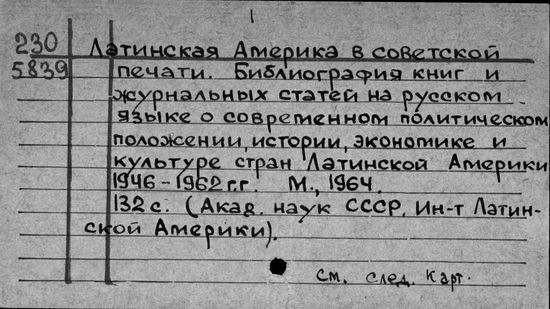 1
230 Латинская Америка в советской
5839 печати. Библиография книг и
журнальных статей на русском
языке о современном политическом
положении, истории, экономике и
культуре стран Латинской Америки
1946-1962 г.г. М., 1964.
132 с. (Акад. наук СССР. Ин-т Латин-
ской Америки).
См. след. карт.